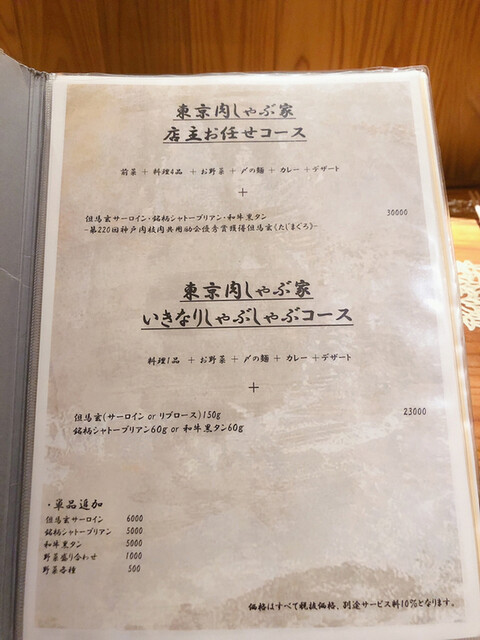 東京肉しゃぶ家
店主お任せコース
前菜 + 料理4品 + お野菜 + 〆の麺 + カレー + デザート
+
但馬玄サーロイン・銘柄シャトーブリアン・和牛黒タン 30000
-第220回神戸肉枝肉共用励会優秀賞獲得但馬玄(たじまぐろ)-
東京肉しゃぶ家
いきなりしゃぶしゃぶコース
料理1品 + お野菜 + 〆の麺 + カレー + デザート
+
但馬玄(サーロイン or リブロース)150g 23000
銘柄シャトーブリアン60g or 和牛黒タン60g
・単品追加
但馬玄サーロイン 6000
銘柄シャトーブリアン 5000
和牛黒タン 5000
野菜盛り合わせ 1000
野菜各種 500
価格はすべて税抜価格、別途サービス料10%となります。